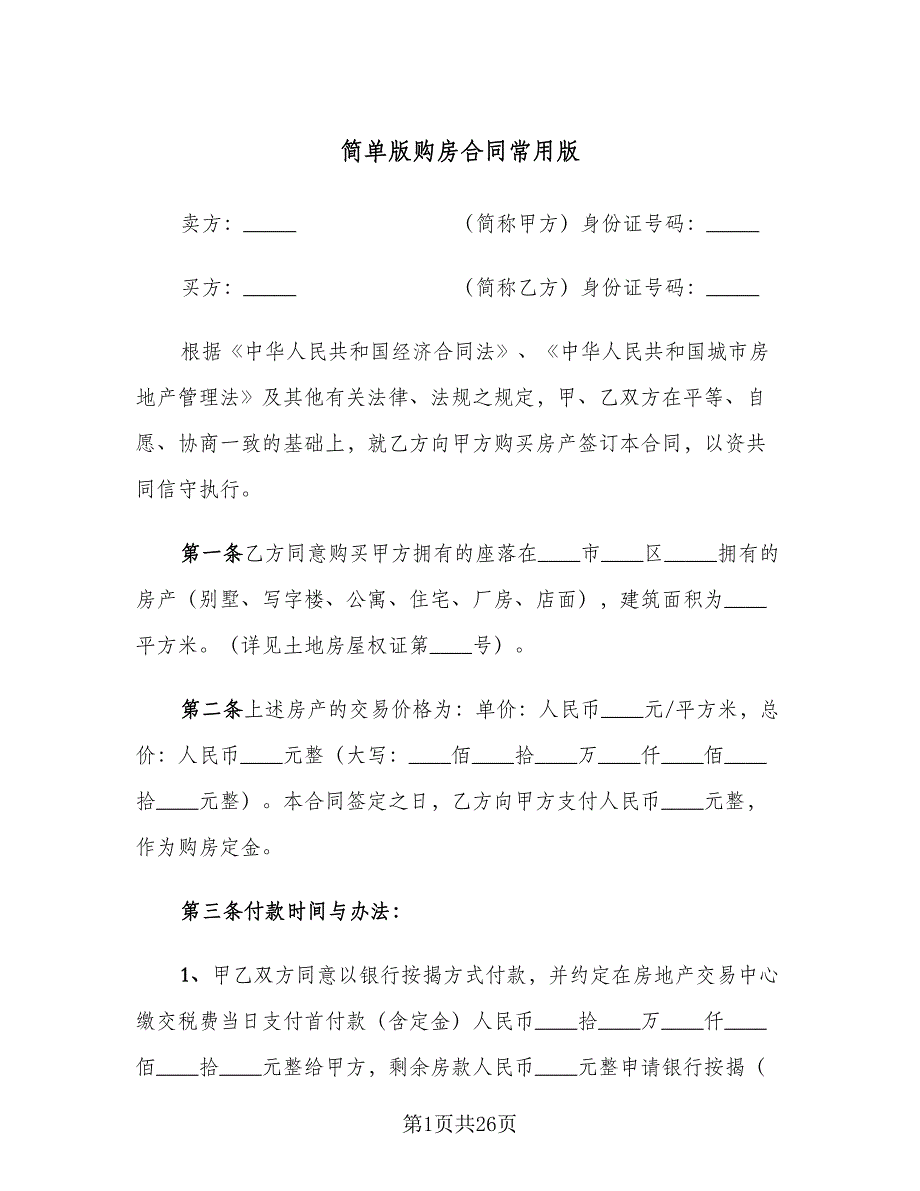 简单版购房合同常用版
卖方：_____ （简称甲方）身份证号码：_____
买方：_____ （简称乙方）身份证号码：_____
根据《中华人民共和国经济合同法》、《中华人民共和国城市房
地产管理法》及其他有关法律、法规之规定，甲、乙双方在平等、自
愿、协商一致的基础上，就乙方向甲方购买房产签订本合同，以资共
同信守执行。
第一条乙方同意购买甲方拥有的座落在____市____区_____拥有的
房产（别墅、写字楼、公寓、住宅、厂房、店面），建筑面积为____
平方米。（详见土地房屋权证第____号）。
第二条上述房产的交易价格为：单价：人民币____元/平方米，总
价：人民币____元整（大写：____佰____拾____万____仟____佰____
拾____元整）。本合同签定之日，乙方向甲方支付人民币____元整，
作为购房定金。
第三条付款时间与办法：
1、甲乙双方同意以银行按揭方式付款，并约定在房地产交易中心
缴交税费当日支付首付款（含定金）人民币____拾____万____仟____
佰____拾____元整给甲方，剩余房款人民币____元整申请银行按揭（
第1页共26页